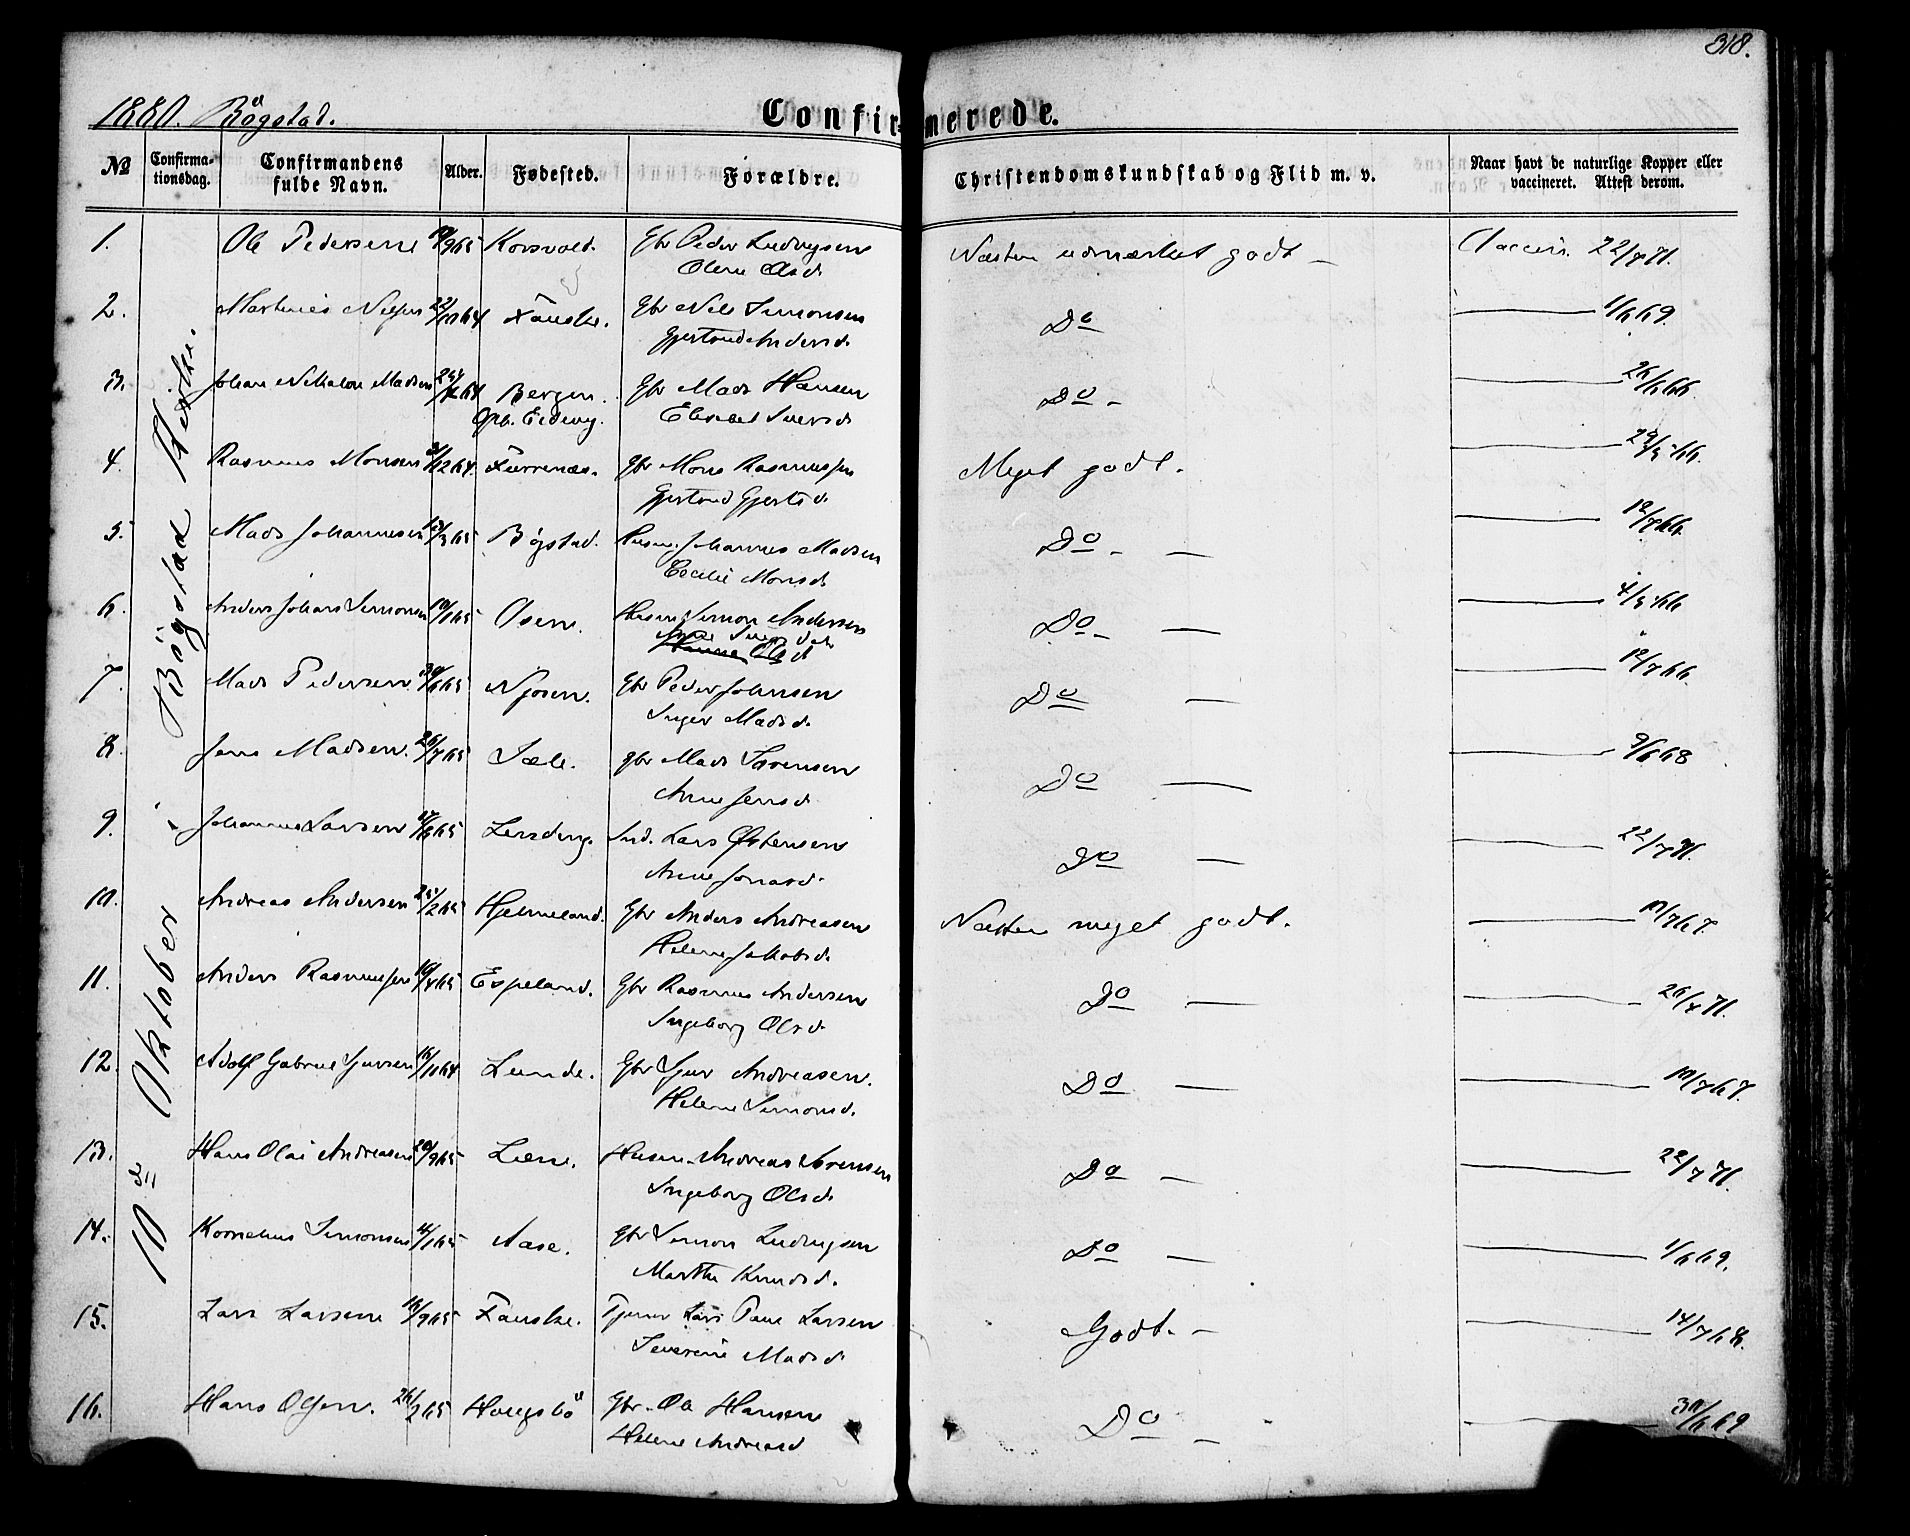 318.
1880. Bögstad.
Confirmerede.
No Confirmationsdag. Confirmandens fulde Navn. Alder. Fødested. Forældre. Christendomskundskab og Flid m. v. Naar havt de naturlige Kopper eller vaccineret. Attest derom.
10de Oktober i Bögstad Kirke.
1. Ole Pedersen /9 65 Korsvold. Gbr Peder Ludvigsen Næsten udmærket godt — Vaccin. 22/7 71.
Olene Olsd.
2. Martinus Nilsen 22/10 64 Fauske. Gbr Nils Simonsen Do — 1/6 69.
Gjertrud Andersd.
3. Johan Nikolai Madsen 64 Bergen. Gbr Mads Hansen Do - — 26/6 66.
Opb. Eldevig. Elisabet Sivertsd.
4. Rasmus Monsen /12 64. Furrenæs. Gbr Mons Rasmussen Meget godt. — 29/5 66.
Gjertrud Gjertsd.
5. Mads Johannesen /3 65 Bögstad. Husm. Johannes Madsen Do - — — 12/7 66.
Cecilie Monsd.
6. Anders Johan Simonsen 10/1 65 Osen. Husm Simon Andersen Do - — — 4/5 66
Olsd
7. Mads Pedersen 30/6 65 Njøsen. Gbr Peder Johnsen Do — — 12/7 66.
Inger Madsd.
8. Jens Madsen. 26/7 65 Sæle. Gbr Mads Sørensen Do — — 9/6 68
Anne Jensd.
9. Johannes Larsen /8 65 Lending. Ind. Lars Østensen Do — — 22/7 71.
Anne Jonasd.
10. Andreas Andersen /2 65 Hjelmeland. Gbr Anders Andreasen Næsten meget godt. — /7 67.
Helene Jakobsd.
11. Anders Rasmussen 10/4 65 Espeland. Gbr Rasmus Andersen Do — — 26/7 71.
Ingeborg Olsd.
12. Adolf Gabriel Sjursen 16/11 64 Lunde. Gbr Sjur Andreasen. Do — — /7 67.
Helene Simonsd.
13. Hans Olai Andreasen 20/9 65 Lien. Husm. Andreas Sørensen Do — — 22/7 71.
Ingeborg Olsd.
14. Kornelius Simonsen 4/1 65 Aase. Gbr Simon Ludvigsen Do — — 1/6 69.
Marthe Knudsd.
15. Lars Larsen 16/9 65 Fauske. Tjener Lars Paul Larsen Godt. — — 14/7 68.
Severine Madsd.
16. Hans Olsen. 26/2 65 Haugsbö Gbr. Ole Hansen Do — — 30/6 69
Helene Andreasd